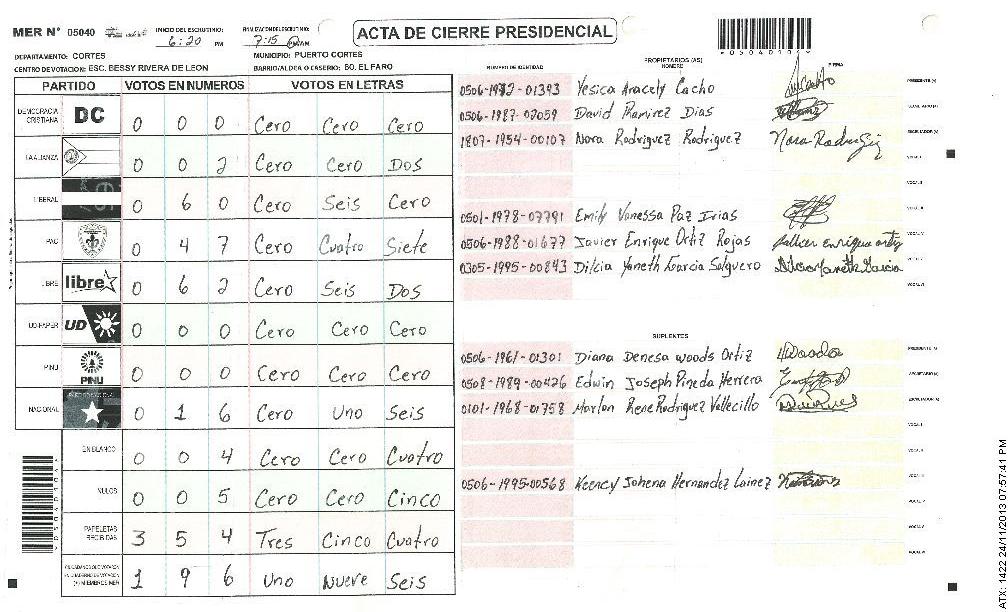 MER N° 05040
INICIO DEL ESCRUTINIO: 6:20 PM
7:15 PM/AM
ACTA DE CIERRE PRESIDENCIAL
05040101
DEPARTAMENTO: CORTES
MUNICIPIO: PUERTO CORTES
CENTRO DE VOTACION: ESC. BESSY RIVERA DE LEON
BARRIO/ALDEA O CASERIO: BO. EL FARO
PARTIDO VOTOS EN NUMEROS VOTOS EN LETRAS
DEMOCRACIA CRISTIANA DC 0 0 0 Cero Cero Cero
LA ALIANZA 0 0 2 Cero Cero Dos
LIBERAL 0 6 0 Cero Seis Cero
PAC 0 4 7 Cero Cuatro Siete
LIBRE libre 0 6 2 Cero Seis Dos
UD-FAPER UD 0 0 0 Cero Cero Cero
PINU PINU 0 0 0 Cero Cero Cero
NACIONAL 0 1 6 Cero Uno Seis
EN BLANCO 0 0 4 Cero Cero Cuatro
NULOS 0 0 5 Cero Cero Cinco
PAPELETAS RECIBIDAS 3 5 4 Tres Cinco Cuatro
1 9 6 Uno Nueve Seis
NUMERO DE IDENTIDAD
PROPIETARIOS (AS)
NOMBRE
FIRMA
0506-1972-01393 Yesica Aracely Cacho
0506-1987-02059 David Ramirez Dias
1807-1954-00107 Nora Rodriguez Rodriguez Nora Rodriguez
0501-1978-07791 Emily Vanessa Paz Irias
0506-1988-01677 Javier Enrique Ortiz Rojas
0305-1995-00843 Dilcia Yaneth Garcia Salguero
SUPLENTES
0506-1961-01301 Diana Denesa Woods Ortiz
0508-1989-00426 Edwin Joseph Pineda Herrera
0101-1968-01758 Marlon Rene Rodriguez Vallecillo
0506-1995-00568 Keency Johena Hernandez Lainez
ATX: 1422 24/11/2013 07:57:41 PM